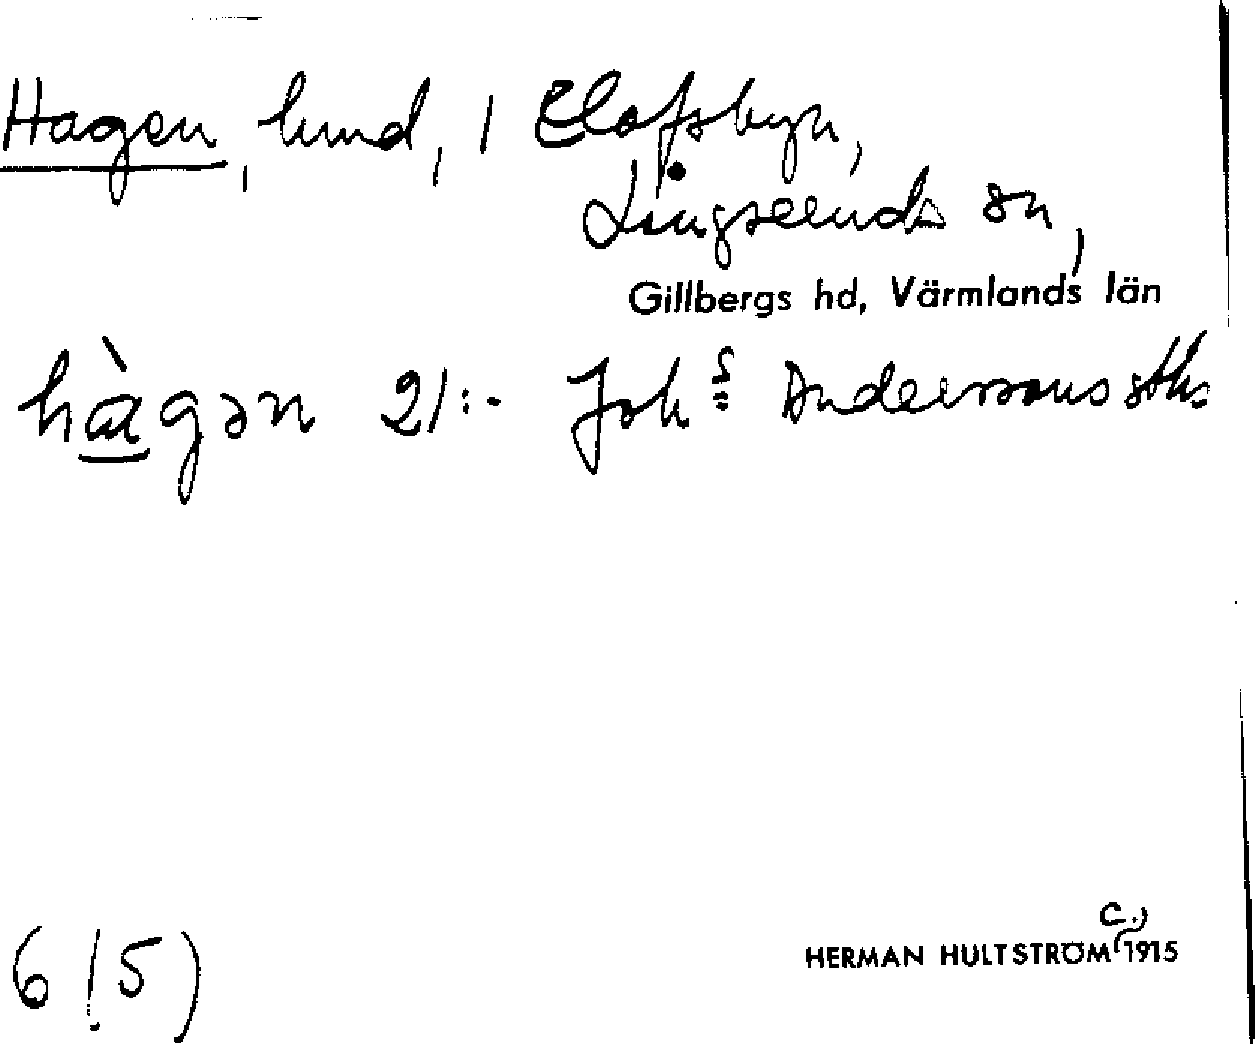 Hagen, lund, i Elofsbyn,
Långseruds sn,
Gillbergs hd, Värmlands län
hàgən 21:- Joh:s Anderssons
6 (5)
c.)
HERMAN HULTSTRÖM 1915